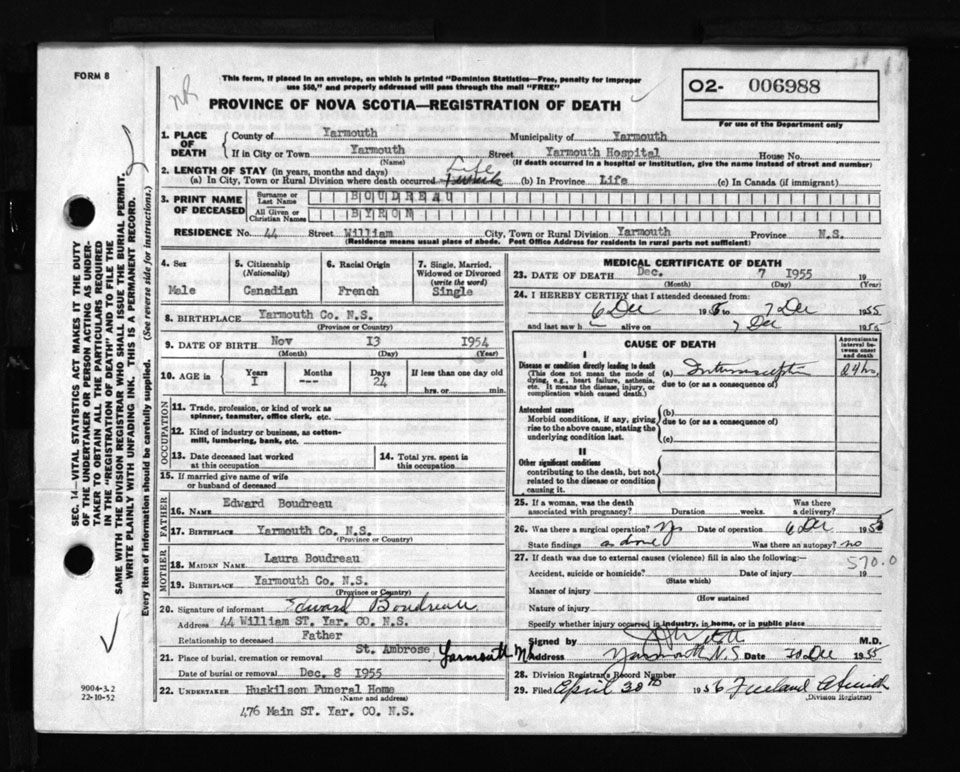 FORM 8
NR
This form, if placed in an envelope, on which is printed "Dominion Statistics—Free, penalty for improper
use $50," and properly addressed will pass through the mail "FREE"
PROVINCE OF NOVA SCOTIA—REGISTRATION OF DEATH
O2- 006988
For use of the Department only
1. PLACE OF DEATH County of Yarmouth Municipality of Yarmouth
If in City or Town Yarmouth Street Yarmouth Hospital House No.
(Name) (If death occurred in a hospital or institution, give the name instead of street and number)
2. LENGTH OF STAY (in years, months and days)
(a) In City, Town or Rural Division where death occurred Life (b) In Province Life (c) In Canada (if immigrant)
3. PRINT NAME OF DECEASED Surname or Last Name BOUDREAU
All Given or Christian Names BYRON
RESIDENCE No. 44 Street William City, Town or Rural Division Yarmouth Province N.S.
(Residence means usual place of abode. Post Office Address for residents in rural parts not sufficient)
4. Sex 5. Citizenship (Nationality) 6. Racial Origin 7. Single, Married, Widowed or Divorced (write the word)
Male Canadian French Single
8. BIRTHPLACE Yarmouth Co. N.S.
(Province or Country)
9. DATE OF BIRTH Nov 13 1954
(Month) (Day) (Year)
10. AGE in Years Months Days If less than one day old
1 --- 24 hrs. or min.
OCCUPATION
11. Trade, profession, or kind of work as
spinner, teamster, office clerk, etc.
12. Kind of industry or business, as cotton-
mill, lumbering, bank, etc.
13. Date deceased last worked
at this occupation
14. Total yrs. spent in
this occupation
15. If married give name of wife
or husband of deceased
FATHER
16. NAME Edward Boudreau
17. BIRTHPLACE Yarmouth Co. N.S.
(Province or Country)
MOTHER
18. MAIDEN NAME Laura Boudreau
19. BIRTHPLACE Yarmouth Co. N.S.
(Province or Country)
20. Signature of informant Edward Boudreau
Address 44 William ST. Yar. CO. N.S.
Relationship to deceased Father
21. Place of burial, cremation or removal St. Ambrose, Yarmouth
Date of burial or removal Dec. 8 1955
22. UNDERTAKER Huskilson Funeral Home
(Name and address)
476 Main ST. Yar. CO. N.S.
MEDICAL CERTIFICATE OF DEATH
23. DATE OF DEATH Dec. 7 1955 19
(Month) (Day) (Year)
24. I HEREBY CERTIFY that I attended deceased from:
6 Dec 1955 to 7 Dec 1955
and last saw h alive on 7 Dec 1955
CAUSE OF DEATH
Approximate interval between onset and death
I
Disease or condition directly leading to death
(This does not mean the mode of
dying, e.g., heart failure, asthenia,
etc. It means the disease, injury, or
complication which caused death.)
(a) 24 hrs.
due to (or as a consequence of)
Antecedent causes
Morbid conditions, if any, giving
rise to the above cause, stating the
underlying condition last.
(b)
due to (or as a consequence of)
(c)
II
Other significant conditions
contributing to the death, but not
related to the disease or condition
causing it.
25. If a woman, was the death
associated with pregnancy? Duration weeks. Was there
a delivery?
26. Was there a surgical operation? Yes Date of operation 6 Dec 1955
State findings as above Was there an autopsy? no
27. If death was due to external causes (violence) fill in also the following:—
570.0
Accident, suicide or homicide? Date of injury 19
(State which)
Manner of injury
(How sustained)
Nature of injury
Specify whether injury occurred in industry, in home, or in public place
Signed by M.D.
Address Yarmouth N.S Date 30 Dec 1955
28. Division Registrar's Record Number
29. Filed April 30th 1956 Freeland
(Division Registrar)
SEC. 14—VITAL STATISTICS ACT MAKES IT THE DUTY
OF THE UNDERTAKER OR PERSON ACTING AS UNDER-
TAKER TO OBTAIN ALL THE PARTICULARS REQUIRED
IN THE "REGISTRATION OF DEATH" AND TO FILE THE
SAME WITH THE DIVISION REGISTRAR WHO SHALL ISSUE THE BURIAL PERMIT.
WRITE PLAINLY WITH UNFADING INK. THIS IS A PERMANENT RECORD.
Every item of information should be carefully supplied. (See reverse side for instructions.)
9004-3.2
22-10-52